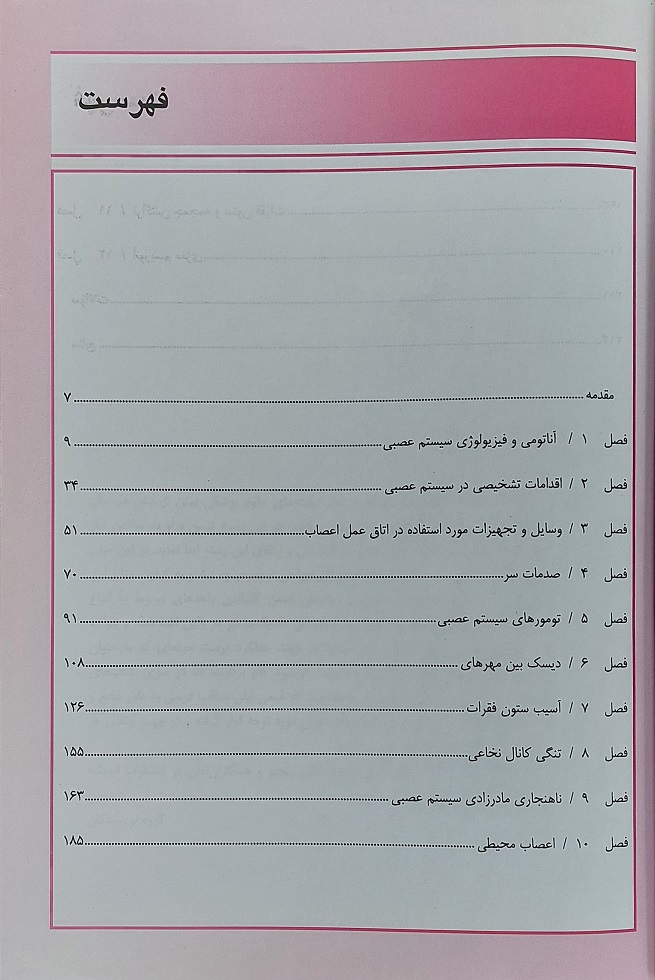 فهرست
مقدمه ........ ۷
فصل ۱ / آناتومی و فیزیولوژی سیستم عصبی ........ ۹
فصل ۲ / اقدامات تشخیصی در سیستم عصبی ........ ۳۴
فصل ۳ / وسایل و تجهیزات مورد استفاده در اتاق عمل اعصاب ........ ۵۱
فصل ۴ / صدمات سر ........ ۷۰
فصل ۵ / تومورهای سیستم عصبی ........ ۹۱
فصل ۶ / دیسک بین مهرهای ........ ۱۰۸
فصل ۷ / آسیب ستون فقرات ........ ۱۲۶
فصل ۸ / تنگی کانال نخاعی ........ ۱۵۵
فصل ۹ / ناهنجاری مادرزادی سیستم عصبی ........ ۱۶۳
فصل ۱۰ / اعصاب محیطی ........ ۱۸۵